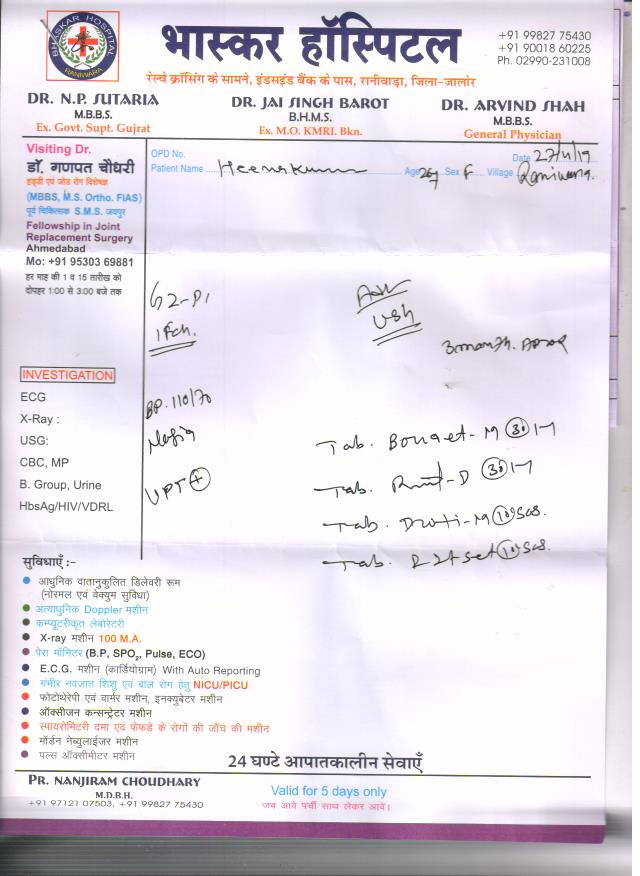 BHASKAR HOSPITAL
RANIWARA
भास्कर हॉस्पिटल
+91 99827 75430
+91 90018 60225
Ph. 02990-231008
रेल्वे क्रॉसिंग के सामने, इंडसइंड बैंक के पास, रानीवाड़ा, जिला-जालोर
DR. N.P. SUTARIA
M.B.B.S.
Ex. Govt. Supt. Gujrat
DR. JAI SINGH BAROT
B.H.M.S.
Ex. M.O. KMRI. Bkn.
DR. ARVIND SHAH
M.B.B.S.
General Physician
Visiting Dr.
डॉ. गणपत चौधरी
हड्डी एवं जोड रोग विशेषज्ञ
(MBBS, M.S. Ortho. FIAS)
पूर्व चिकित्सक S.M.S. जयपुर
Fellowship in Joint
Replacement Surgery
Ahmedabad
Mo: +91 95303 69881
हर माह की 1 व 15 तारीख को
दोपहर 1:00 से 3:00 बजे तक
OPD No.
Date 27/11/19
Patient Name Age 26y Sex F Village Raniwara.
G2-P1
1 Fch.
Adv
USG
3month.
BP. 110/70
UPT +
Tab. -M 30 1-1
Tab. -D 30 1-1
Tab. -M 10
Tab. 10
INVESTIGATION
ECG
X-Ray :
USG:
CBC, MP
B. Group, Urine
HbsAg/HIV/VDRL
सुविधाएँ :-
आधुनिक वातानुकुलित डिलेवरी रूम
(नोरमल एवं वेक्युम सुविधा)
अत्याधुनिक Doppler मशीन
कम्प्यूटरीकृत लेबोरेटरी
X-ray मशीन 100 M.A.
पेरा मॉनिटर (B.P, SPO2, Pulse, ECO)
E.C.G. मशीन (कार्डियोग्राम) With Auto Reporting
गंभीर नवजात शिशु एवं बाल रोग हेतु NICU/PICU
फोटोथेरेपी एवं वार्मर मशीन, इनक्युबेटर मशीन
ऑक्सीजन कन्सन्ट्रेटर मशीन
स्पायरोमिटरी दमा एवं फेफडे के रोगों की जाँच की मशीन
मॉर्डन नेब्युलाईजर मशीन
पल्स ऑक्सीमीटर मशीन
24 घण्टे आपातकालीन सेवाएँ
PR. NANJIRAM CHOUDHARY
M.D.B.H.
+91 97121 07503, +91 99827 75430
Valid for 5 days only
जब आये पर्ची साथ लेकर आवें।